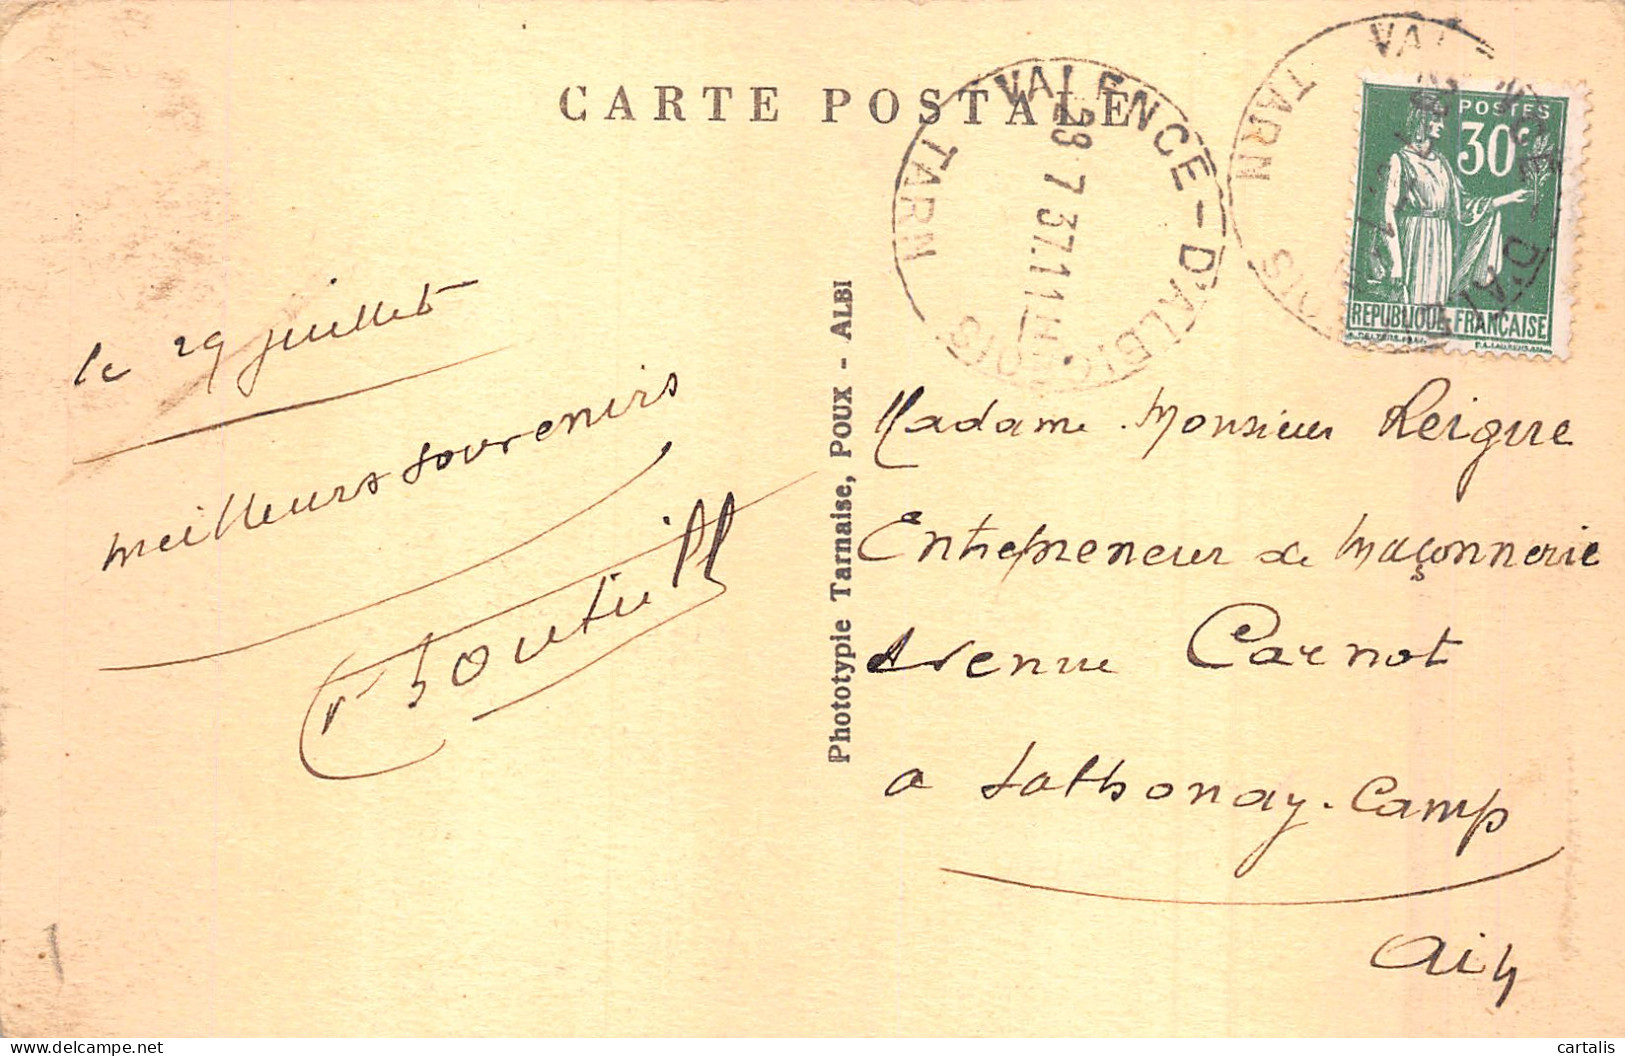 CARTE POSTALE
VALENCE-D'ALBIGEOIS
TARN
28 7 37.11H
VAL
TARN
POSTES
30c
REPUBLIQUE FRANÇAISE
le 29 juillet
meilleurs souvenirs
Phototypie Tarnaise, POUX - ALBI
Madame Monsieur Reigne
Entrepreneur de maçonnerie
Avenue Carnot
a Sathonay-Camp
Ain
cartalis